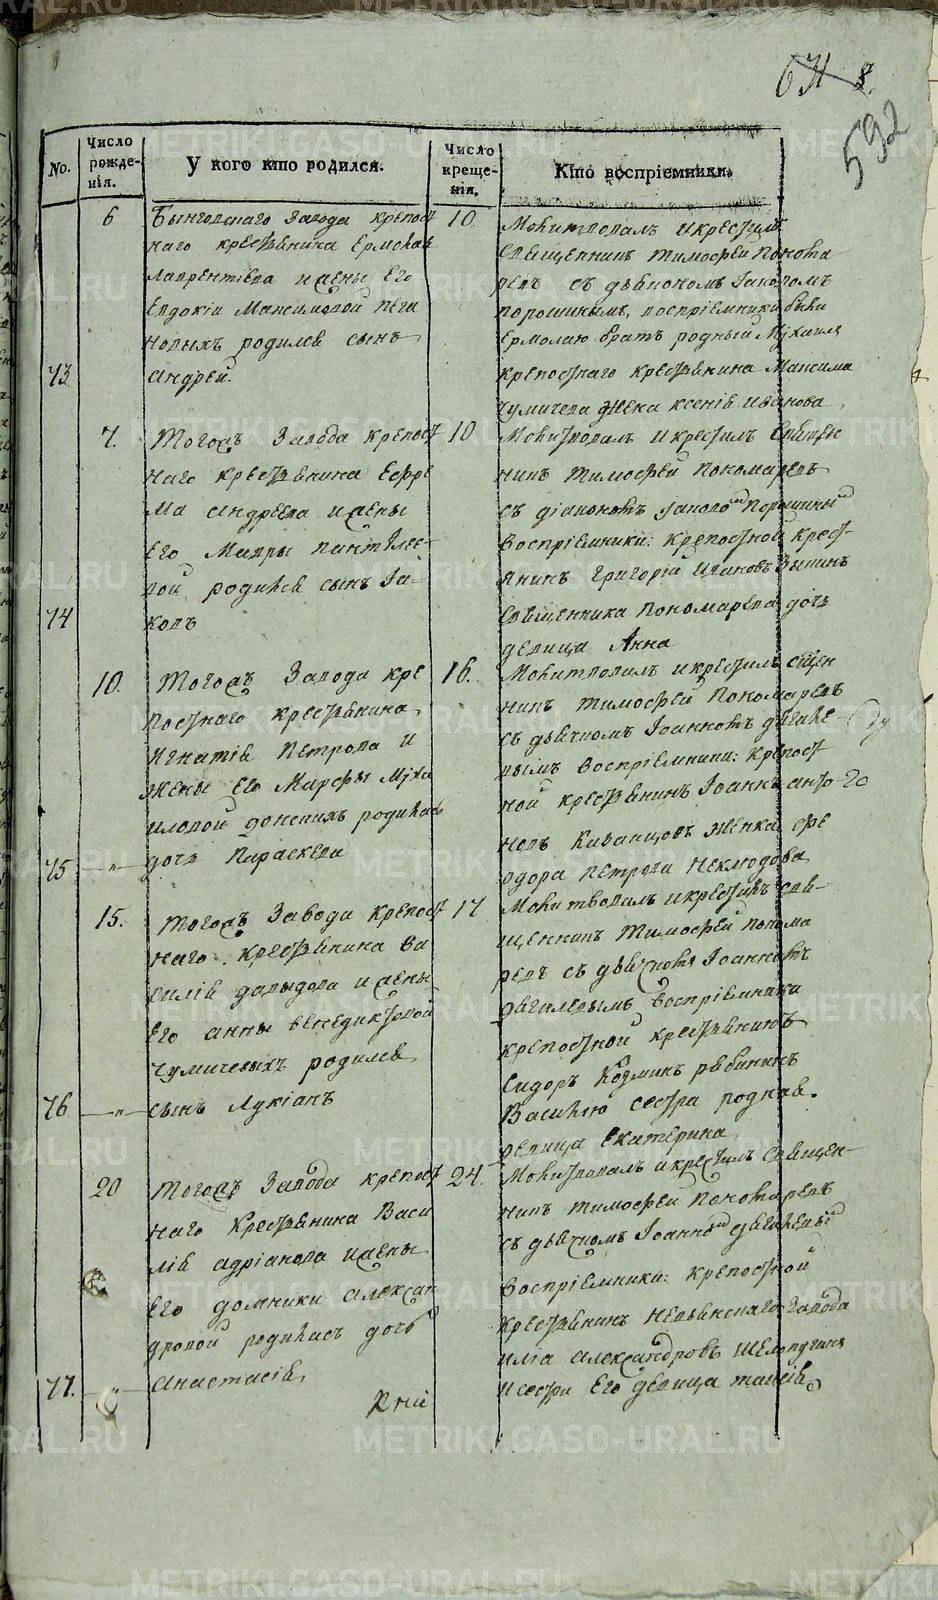 8.
592
No.
Число рожде-нія.
У кого кто родился.
Число креще-нія.
Кто воспріемники.
73
6
Бынговскаго Завода крепост
наго крестьянина Ермолая
Лаврентіева и жены Его
Евдокіи Максимовой
родился сынъ
Андрей.
10
Молитвовалъ и крестилъ
Священникъ Тимофей Понома
ревъ съ дьячкомъ Іаковомъ
Порошинымъ, воспріемники были
Ермолаю братъ родный
крепостнаго крестьянина Максима
Чумичева жена Ксенія Иванова
74
7.
Тогожъ Завода крепост
наго крестьянина Ефре
ма Андреева и жены
Его Мавры Пантелее-
вой родился сынъ Іа-
ковъ
10
Молитвовалъ и крестилъ Священ
никъ Тимофей Пономаревъ
съ Порошинымъ
Воспріемники: крепостной крест-
янинъ Григорій Ивановъ Зыкинъ
Священника Пономарева дочь
девица Анна
75 -„-
10.
Тогожъ Завода кре
постнаго крестьянина
Игнатія Петрова и
жены Его Марфы Миха
иловой Донскихъ родилась
дочь Параскева
16.
Молитвовалъ и крестилъ Сщен
никъ Тимофей Пономаревъ
съ дьячкомъ Іоанномъ Дягиле
вымъ Воспріемники: крепост
ной крестьянинъ Іоаннъ Анто
новъ Казанцовъ женка Фе
одора Петрова Неклюдова
76 -„-
15.
Тогожъ Завода крепост
наго крестьянина Ва
силія Давыдова и жены
Его Анны Венедиктовой
Чумичевыхъ родился
сынъ Лукіанъ
17
Молитвовалъ и крестилъ Свя-
щенникъ Тимофей Понома
ревъ съ дьячкомъ Іоанномъ
Дягилевымъ Воспріемники
крепостной крестьянинъ
Сидоръ Козминъ Рябининъ
Василію сестра родная.
девица Екатерина
77. -„-
20
Тогожъ Завода крепост
наго Крестьянина Васи
лія Адріанова и жены
Его Домники Алексан
дровой родилась дочь
Анастасія,
24.
Молитвовалъ и крестилъ Священ-
никъ Тимофей Пономаревъ
съ дьячкомъ Іоанномъ Дягилевы
Воспріемники: крепостной
крестьянинъ Невьянскаго Завода
Иліа Александровъ Шелопугинъ
и сестра Его девица
METRIKI.GASO-URAL.RU